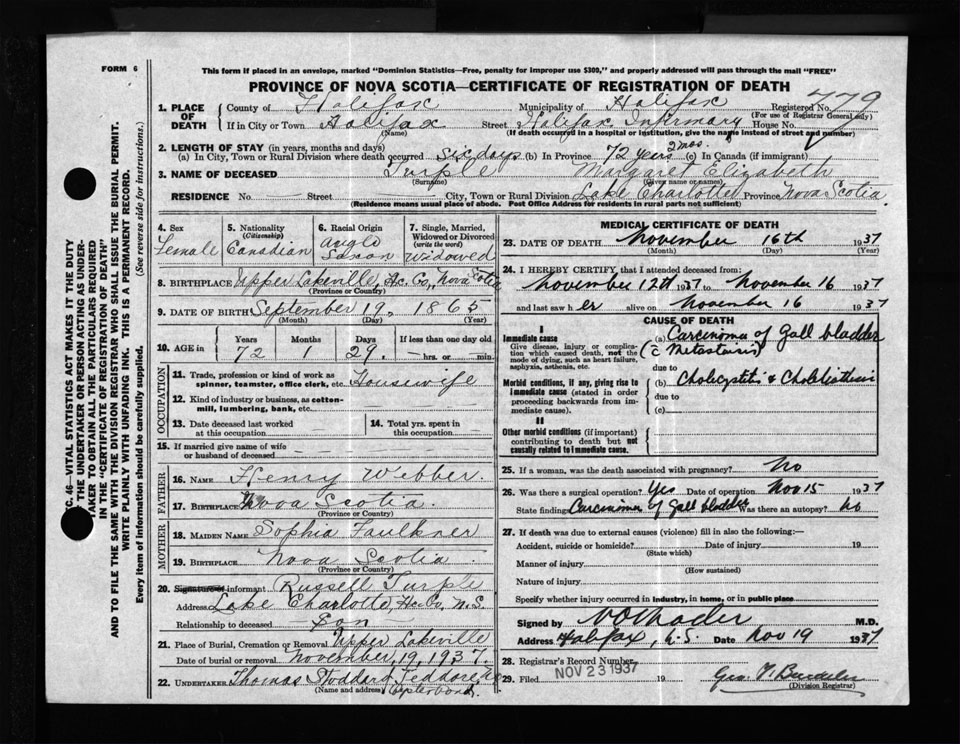 FORM 6
This form if placed in an envelope, marked "Dominion Statistics—Free, penalty for improper use $300," and properly addressed will pass through the mail "FREE"
PROVINCE OF NOVA SCOTIA—CERTIFICATE OF REGISTRATION OF DEATH
779
1. PLACE OF DEATH County of Halifax Municipality of Halifax Registered No.
(For use of Registrar General only)
If in City or Town Halifax Street Halifax Infirmary House No.
(Name) (If death occurred in a hospital or institution, give the name instead of street and number)
2. LENGTH OF STAY (in years, months and days)
(a) In City, Town or Rural Division where death occurred six days (b) In Province 72 years 2 mos. (c) In Canada (if immigrant)
3. NAME OF DECEASED Turple Margaret Elizabeth
(Surname) (Given name or names)
RESIDENCE No. Street City, Town or Rural Division Lake Charlotte Province Nova Scotia
(Residence means usual place of abode. Post Office Address for residents in rural parts not sufficient)
4. Sex Female
5. Nationality (Citizenship) Canadian
6. Racial Origin Anglo Saxon
7. Single, Married, Widowed or Divorced (write the word) Widowed
8. BIRTHPLACE Upper Lakeville, Hx. Co., Nova Scotia
(Province or Country)
9. DATE OF BIRTH September 19, 1865
(Month) (Day) (Year)
10. AGE in Years Months Days If less than one day old
72 1 29. hrs. or min.
OCCUPATION
11. Trade, profession or kind of work as spinner, teamster, office clerk, etc. Housewife
12. Kind of industry or business, as cotton-mill, lumbering, bank, etc.
13. Date deceased last worked at this occupation
14. Total yrs. spent in this occupation
15. If married give name of wife or husband of deceased
FATHER
16. NAME Henry Webber.
17. BIRTHPLACE Nova Scotia.
(Province or Country)
MOTHER
18. MAIDEN NAME Sophia Faulkner
19. BIRTHPLACE Nova Scotia
(Province or Country)
20. Signature of informant Russell Turple
Address Lake Charlotte, Hx. Co., N.S.
Relationship to deceased Son
21. Place of Burial, Cremation or Removal Upper Lakeville
Date of burial or removal November, 19, 1937.
22. UNDERTAKER Thomas Stoddart
(Name and address)
MEDICAL CERTIFICATE OF DEATH
23. DATE OF DEATH November 16th 1937
(Month) (Day) (Year)
24. I HEREBY CERTIFY, that I attended deceased from:
November 12th 1937 to November 16 1937
and last saw her alive on November 16 1937
CAUSE OF DEATH
I
Immediate cause
Give disease, injury or complication which caused death, not the mode of dying, such as heart failure, asphyxia, asthenia, etc.
(a) Carcinoma of Gall bladder
(c̄ Metastasis)
due to
Morbid conditions, if any, giving rise to immediate cause (stated in order proceeding backwards from immediate cause).
(b) Cholicystitis & Cholilithesis
due to
(c)
II
Other morbid conditions (if important) contributing to death but not causally related to immediate cause.
25. If a woman, was the death associated with pregnancy? No
26. Was there a surgical operation? Yes Date of operation Nov 15 1937
State finding Carcinoma of Gall bladder Was there an autopsy? No
27. If death was due to external causes (violence) fill in also the following:—
Accident, suicide or homicide? Date of injury 19
(State which)
Manner of injury
(How sustained)
Nature of injury
Specify whether injury occurred in industry, in home, or in public place
Signed by M.D.
Address Halifax, N.S. Date Nov 19 1937
28. Registrar's Record Number
29. Filed NOV 23 1937 19
(Division Registrar)
G. 46—VITAL STATISTICS ACT MAKES IT THE DUTY
OF THE UNDERTAKER OR PERSON ACTING AS UNDER-
TAKER TO OBTAIN ALL THE PARTICULARS REQUIRED
IN THE "CERTIFICATE OF REGISTRATION OF DEATH"
AND TO FILE THE SAME WITH THE DIVISION REGISTRAR WHO SHALL ISSUE THE BURIAL PERMIT.
WRITE PLAINLY WITH UNFADING INK. THIS IS A PERMANENT RECORD.
Every item of information should be carefully supplied. (See reverse side for instructions.)